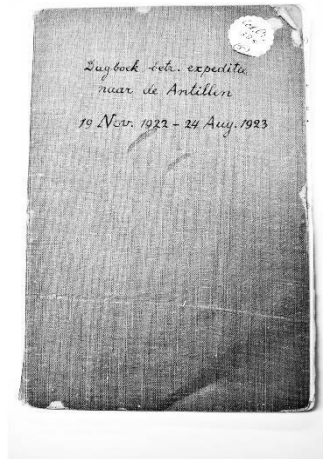 Dagboek betr. expeditie
naar de Antillen
19 Nov. 1922 - 24 Aug. 1923